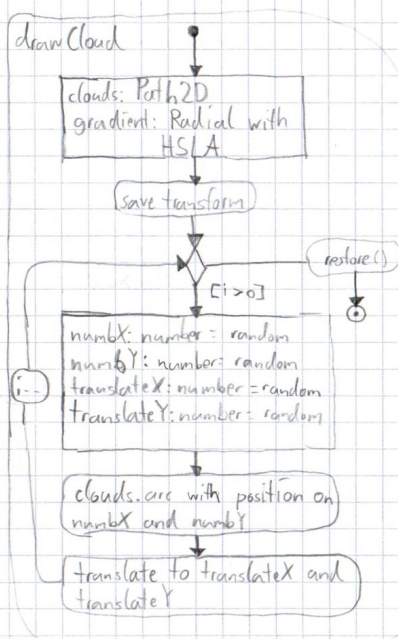 drawCloud
clouds: Path2D
gradient: Radial with
HSLA
save transform
restore()
[i>0]
numbX: number = random
numbY: number= random
translateX: number =random
translateY: number= random
i--
clouds.arc with position on
numbX and numbY
translate to translateX and
translateY